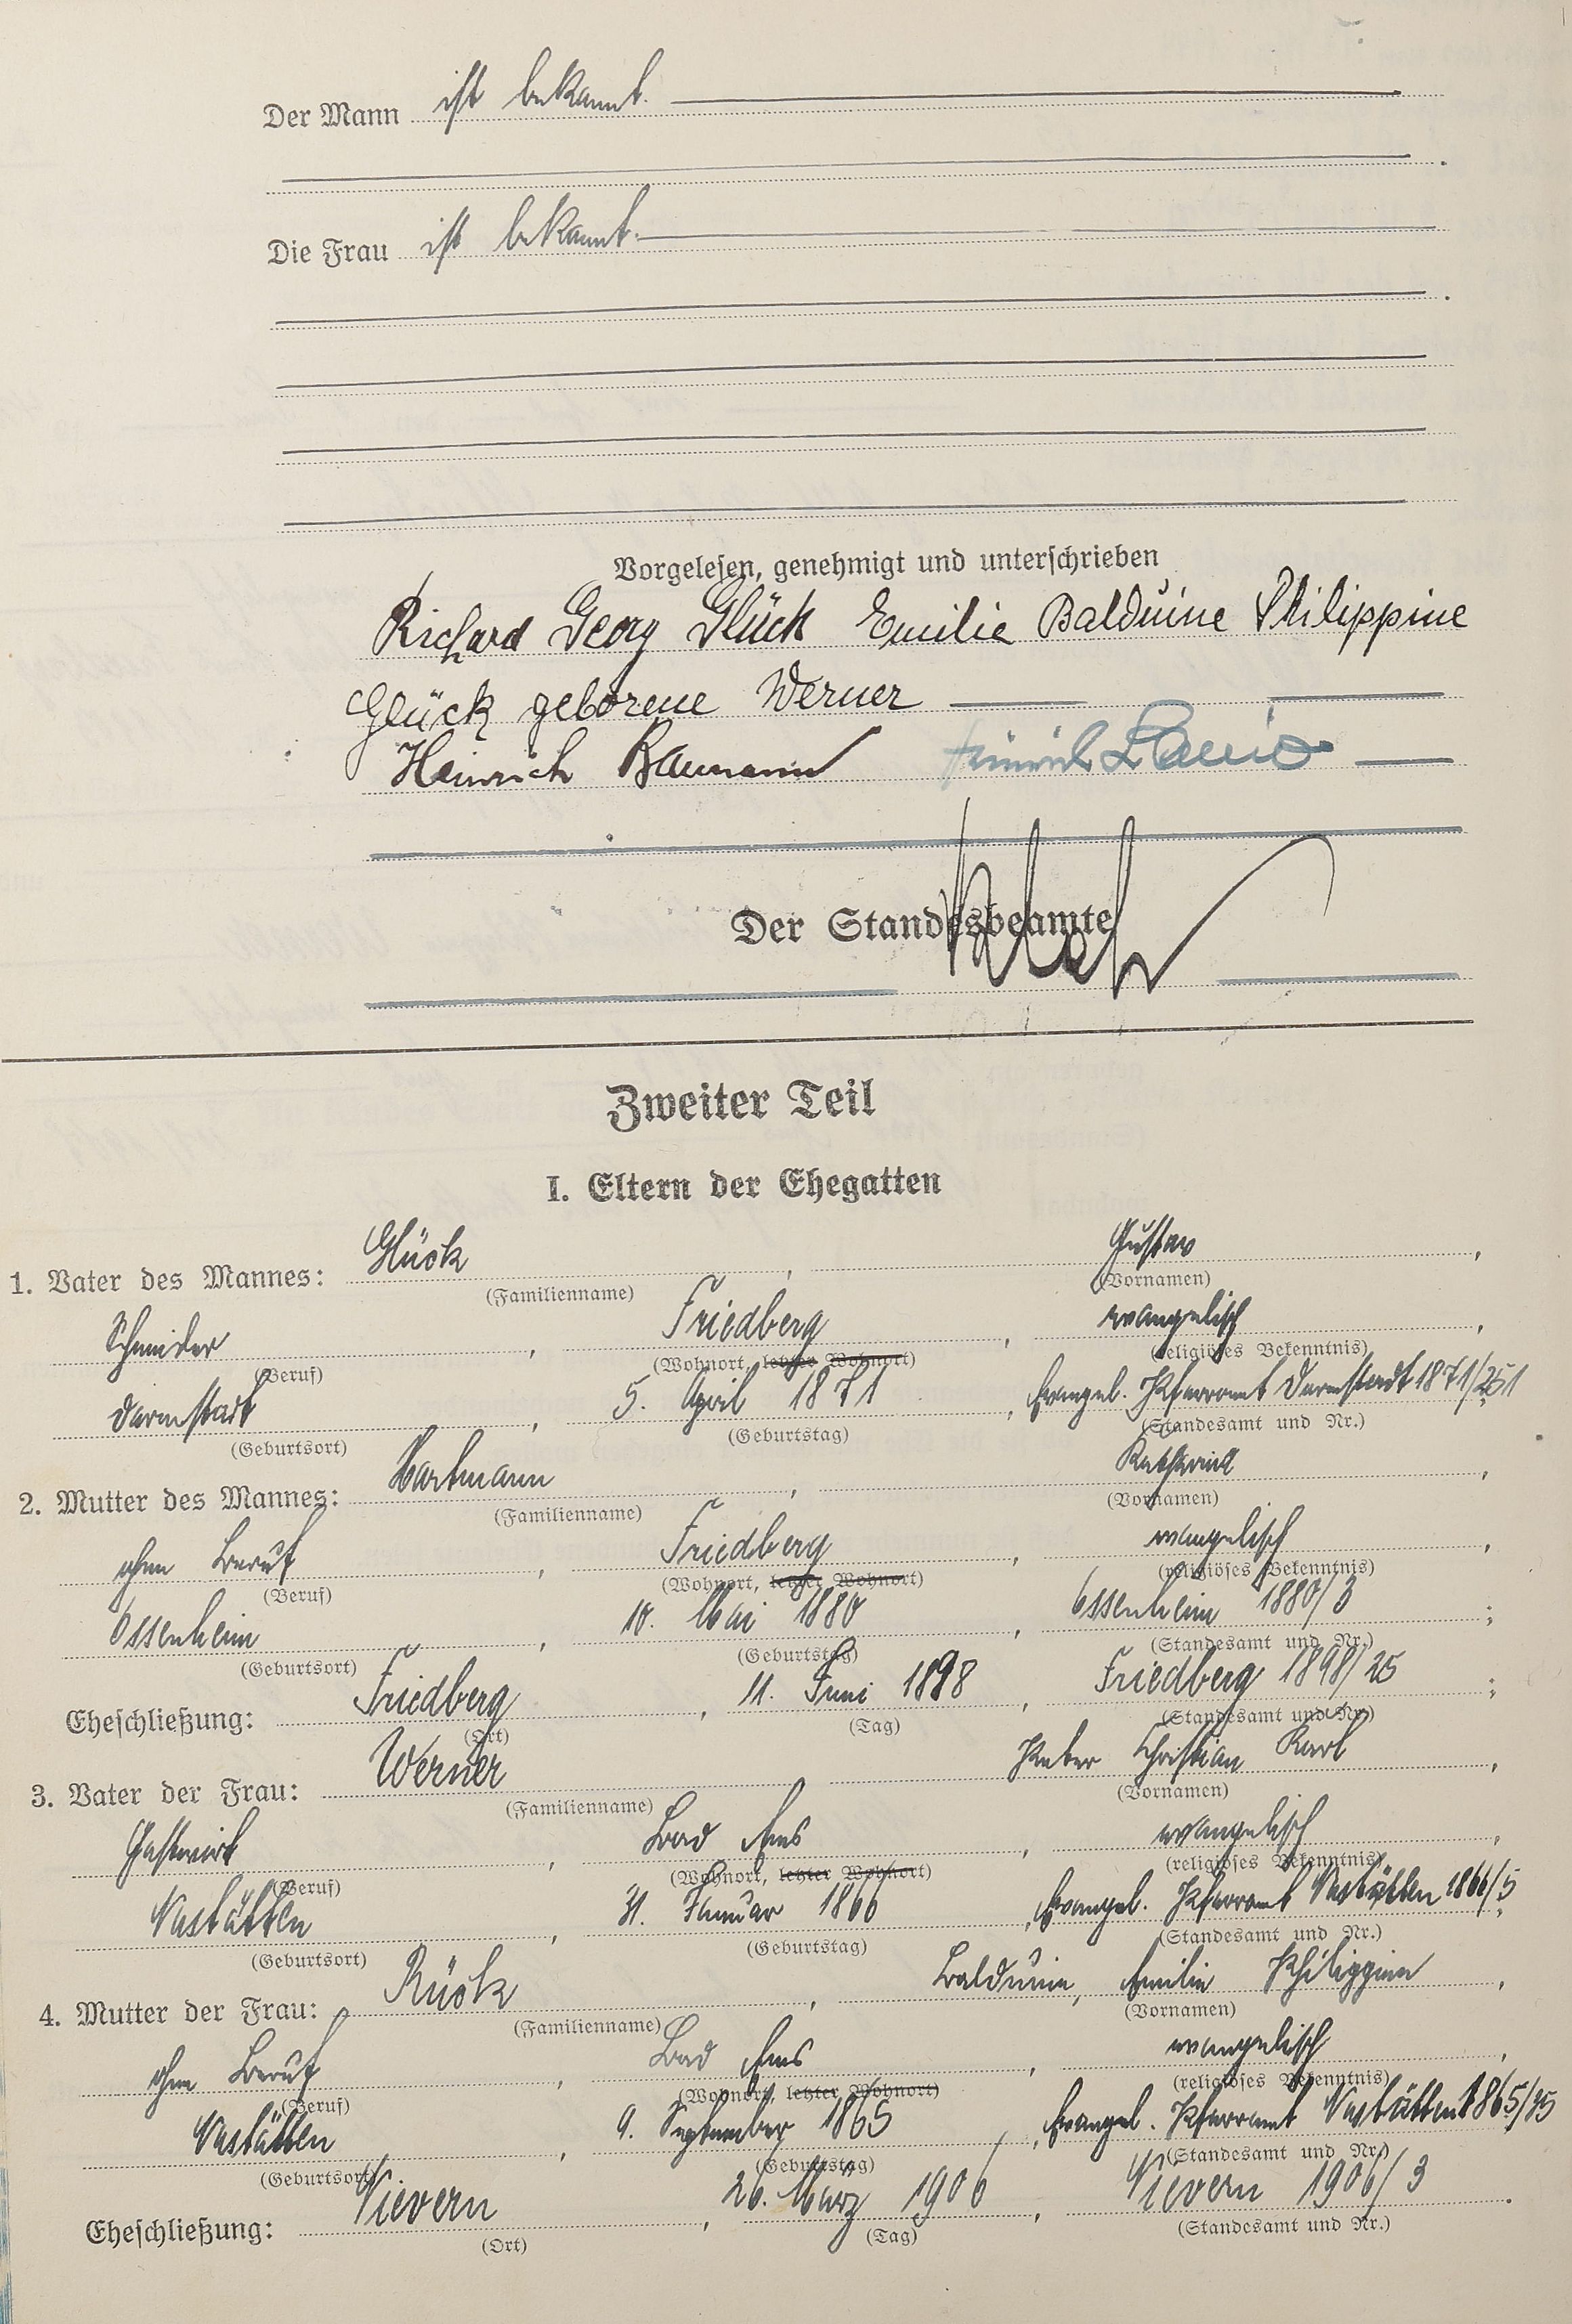 Der Mann ist bekannt.
Die Frau ist bekannt.
Vorgelesen, genehmigt und unterschrieben
Richard Georg Glück Emilie Balduine Philippine
Glück geborene Werner
Heinrich Baumann Heinrich
Der Standesbeamte
Zweiter Teil
I. Eltern der Ehegatten
1. Vater des Mannes: Glück, Gustav,
(Familienname) (Vornamen)
Schneider, Friedberg, evangelisch,
(Beruf) (Wohnort, letzter Wohnort) (religiöses Bekenntnis)
Darmstadt, 5. April 1871, Evangel. Pfarramt Darmstadt 1871/251
(Geburtsort) (Geburtstag) (Standesamt und Nr.)
2. Mutter des Mannes: Hartmann, Katharina,
(Familienname) (Vornamen)
ohne Beruf, Friedberg, evangelisch,
(Beruf) (Wohnort, letzter Wohnort) (religiöses Bekenntnis)
Ossenheim, 10. Mai 1880, Ossenheim 1880/3;
(Geburtsort) (Geburtstag) (Standesamt und Nr.)
Eheschließung: Friedberg, 11. Juni 1898, Friedberg 1898/25;
(Ort) (Tag) (Standesamt und Nr.)
3. Vater der Frau: Werner Peter Christian Karl,
(Familienname) (Vornamen)
Gastwirt, Bad Ems, evangelisch,
(Beruf) (Wohnort, letzter Wohnort) (religiöses Bekenntnis)
Nastätten, 31. Januar 1866, Evangel. Pfarramt Nastätten 1866/5,
(Geburtsort) (Geburtstag) (Standesamt und Nr.)
4. Mutter der Frau: Rück, Balduine, Emilie Philippine,
(Familienname) (Vornamen)
ohne Beruf, Bad Ems, evangelisch,
(Beruf) (Wohnort, letzter Wohnort) (religiöses Bekenntnis)
Nastätten, 9. September 1865, Evangel. Pfarramt Nastätten 1865/45
(Geburtsort) (Geburtstag) (Standesamt und Nr.)
Eheschließung: Nievern, 26. März 1906, Nievern 1906/3.
(Ort) (Tag) (Standesamt und Nr.)